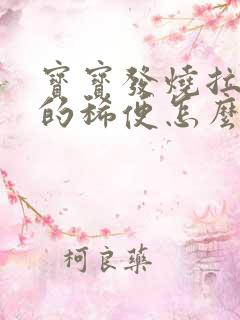 寶寶發燒拉
的稀便怎麼
柯良藥